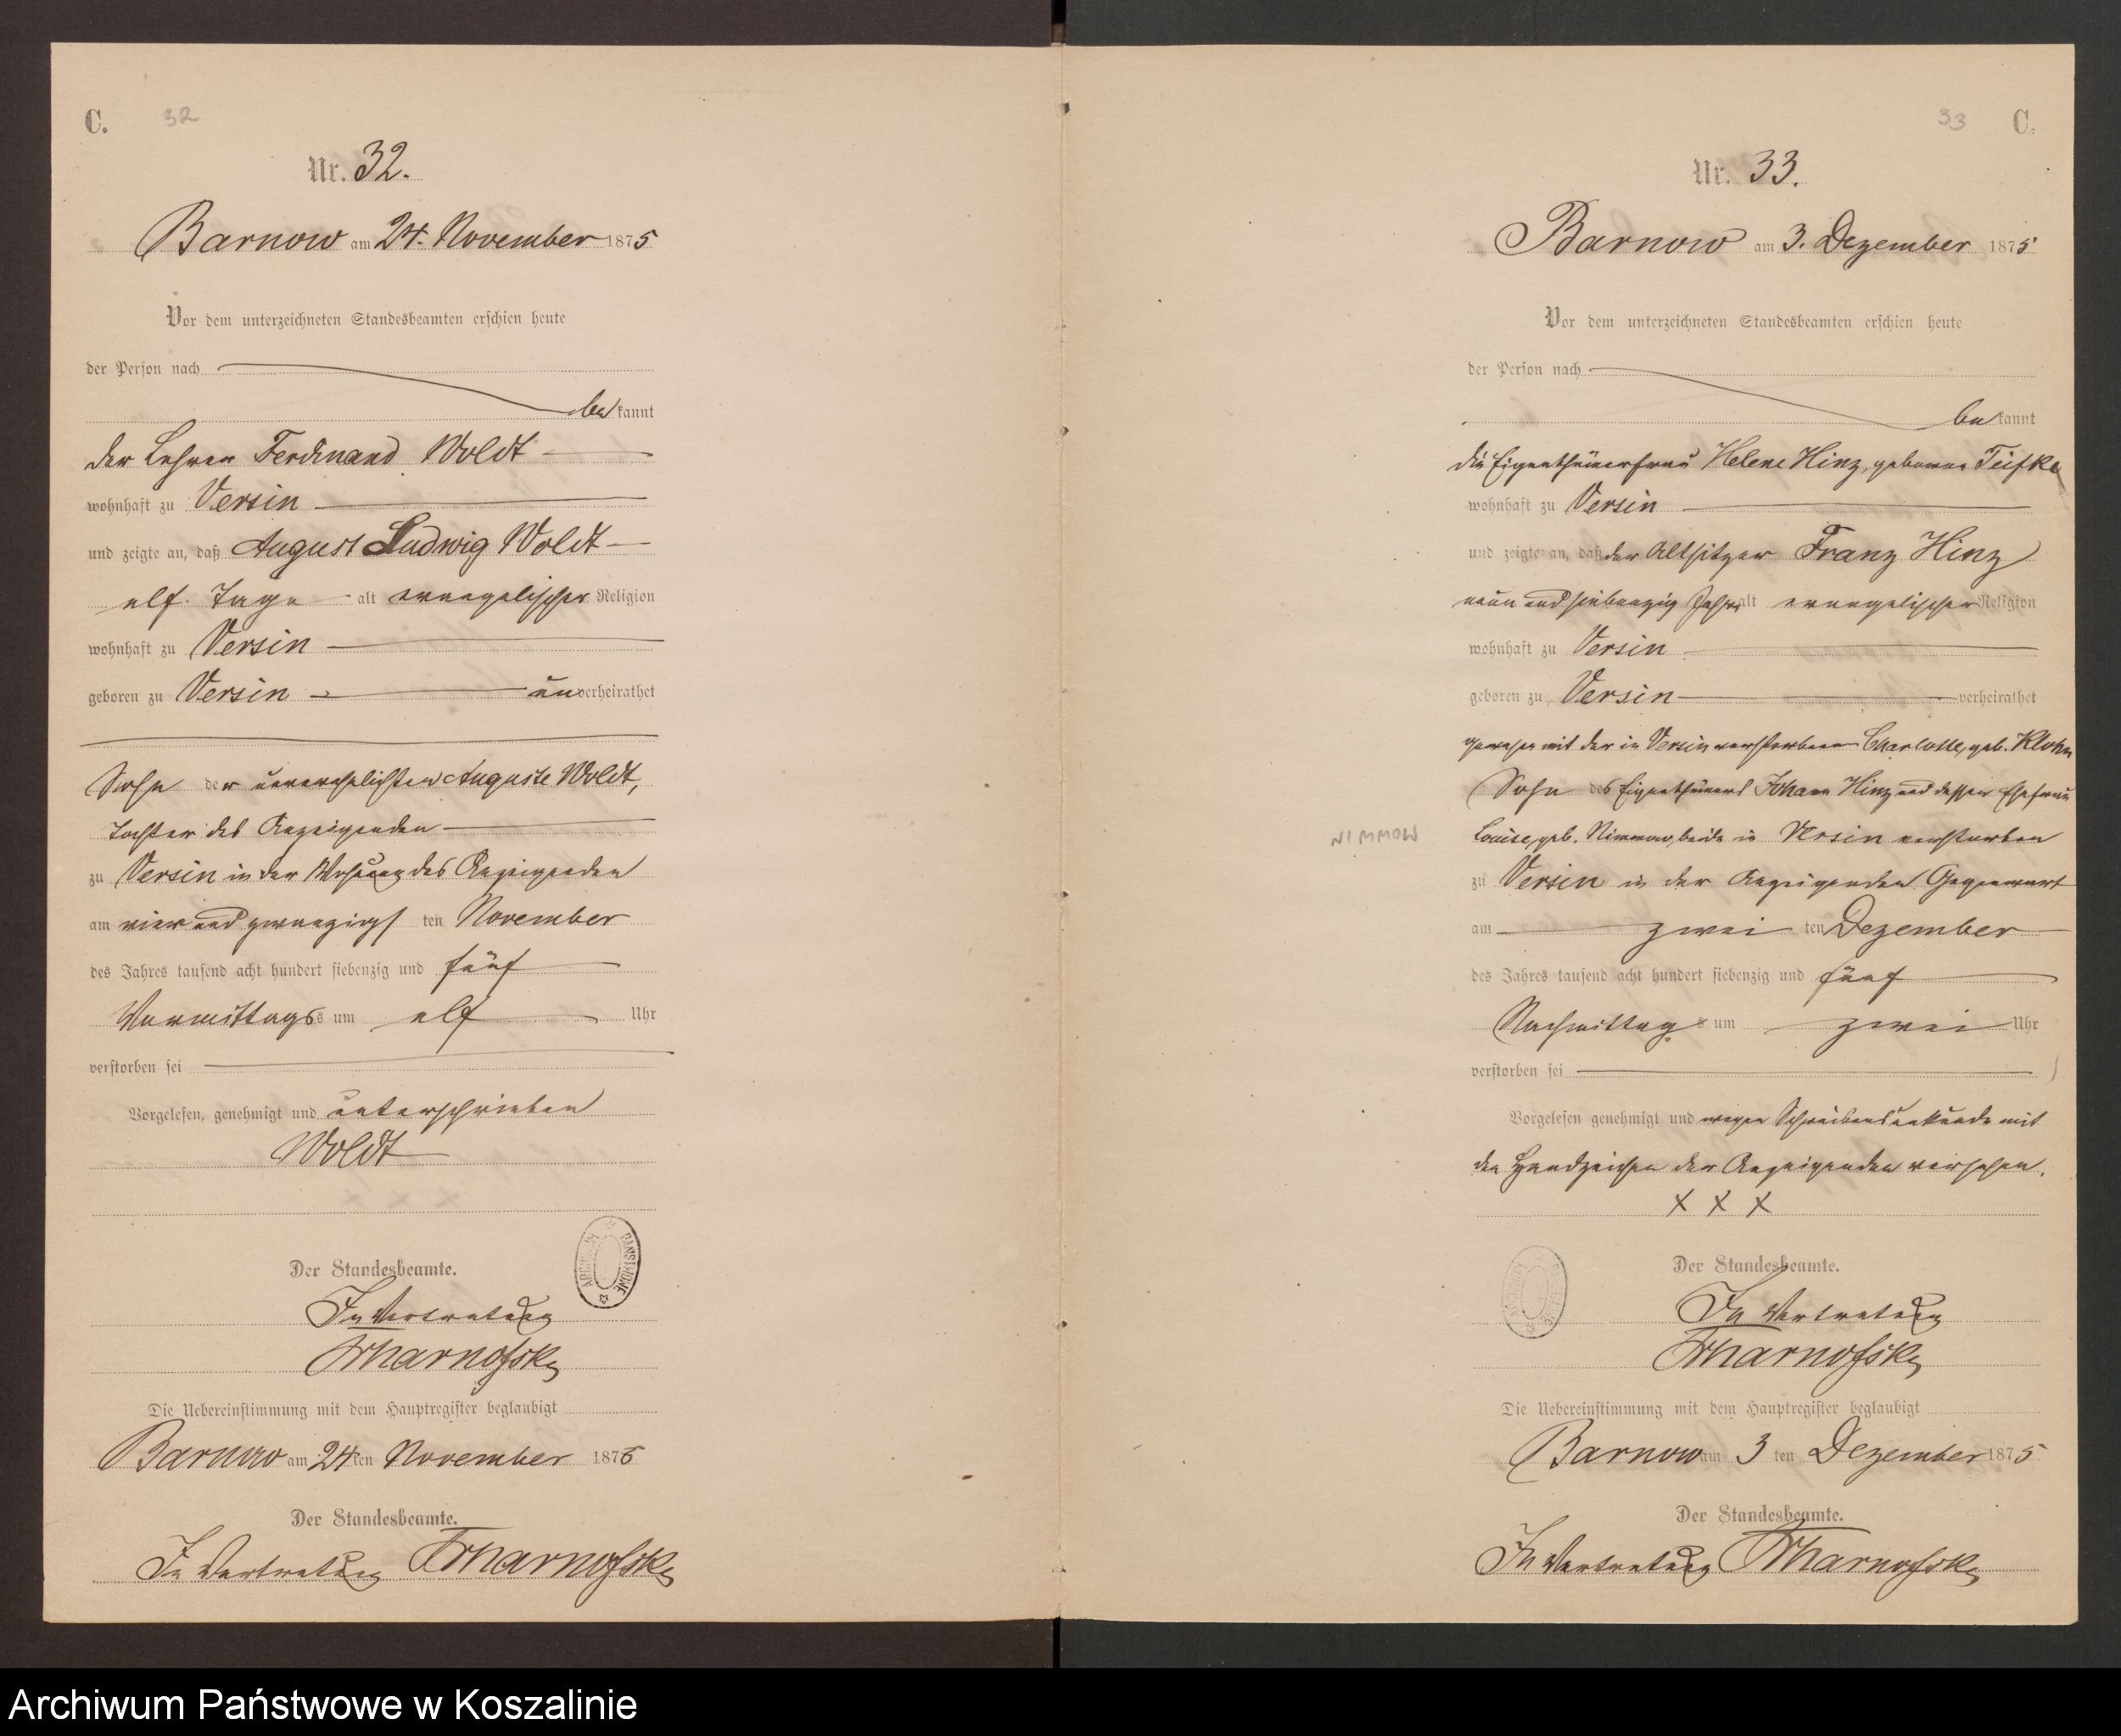 C. 32
Nr. 32.
Barnow am 24. November 1875
Vor dem unterzeichneten Standesbeamten erschien heute
der Person nach
bekannt
der Lehrer Ferdinand Woldt
wohnhaft zu Versin
und zeigte an, daß August Ludwig Woldt
elf Tage alt evangelischer Religion
wohnhaft zu Versin
geboren zu Versin unverheirathet
Sohn der unverehelichten Auguste Woldt,
Tochter des Anzeigenden
zu Versin in der Wohnung des Anzeigenden
am vier und zwanzigsten November
des Jahres tausend acht hundert siebenzig und fünf
Vormittags um elf Uhr
verstorben sei
Vorgelesen, genehmigt und unterschrieben
Woldt
Der Standesbeamte.
In Vertretung
Die Uebereinstimmung mit dem Hauptregister beglaubigt
Barnow am 24ten November 1875
Der Standesbeamte.
In Vertretung
ARCHIWUM PAŃSTWOWE
33 C.
Nr. 33.
Barnow am 3. Dezember 1875
Vor dem unterzeichneten Standesbeamten erschien heute
der Person nach
bekannt
die Eigenthümerfrau Helene Hinz, geborene
wohnhaft zu Versin
und zeigte an, daß der Altsitzer Franz Hinz
neun und siebenzig Jahre alt evangelischer Religion
wohnhaft zu Versin
geboren zu Versin verheirathet
gewesen mit der in Versin verstorbenen Charlotte, geb.
Sohn des Eigenthümers Johann Hinz und dessen Ehefrau
NIMMOW
Louise, geb. Nimmow, beide in Versin verstorben
zu Versin in der Anzeigenden Gegenwart
am zweiten Dezember
des Jahres tausend acht hundert siebenzig und fünf
Nachmittags um zwei Uhr
verstorben sei
Vorgelesen genehmigt und wegen Schreibensunkunde mit
den Handzeichen der Anzeigenden versehen.
X X X
Der Standesbeamte.
In Vertretung
Die Uebereinstimmung mit dem Hauptregister beglaubigt
Barnow am 3 ten Dezember 1875
Der Standesbeamte.
In Vertretung
Archiwum Państwowe w Koszalinie